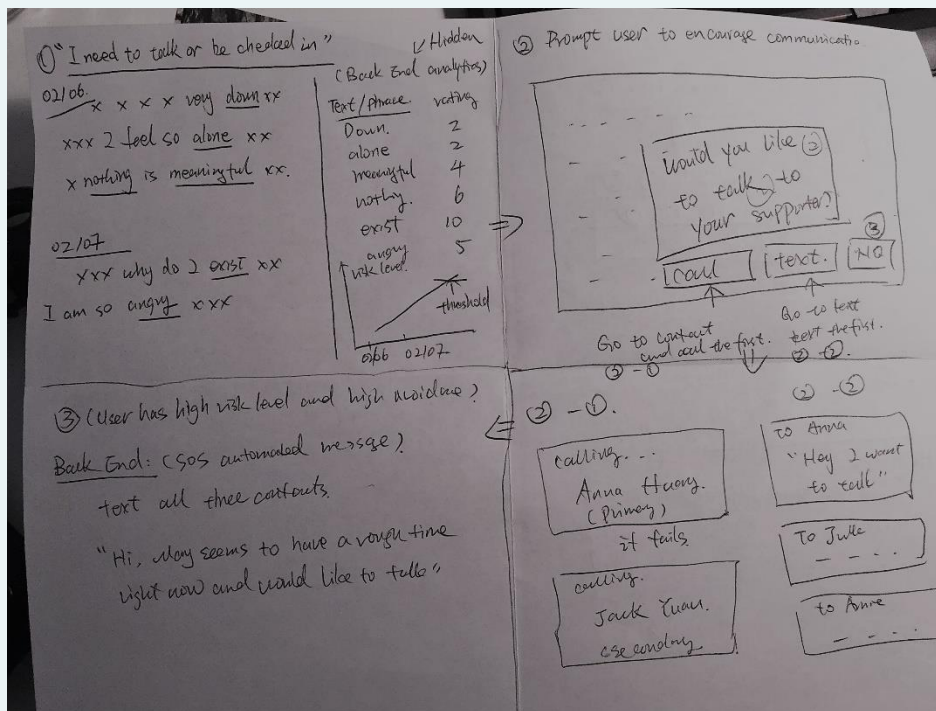 ① "I need to talk or be checked in"
02/06.
x x x x very down xx
xxx I feel so alone xx
x nothing is meaningful xx.
02/07
xxx why do I exist xx
I am so angry xxx
Hidden
(Back End analytics)
Text/phrase. rating
Down. 2
alone 2
meaningful 4
nothing. 6
exist 10
angry 5
risk level.
threshold
02/06 02/07
② Prompt user to encourage communicatio
would you like ②
to talk to
your supporter?
③
call text. NO
Go to contact
and call the first.
② - ①
Go to text
text the first.
② - ②.
③ (User has high risk level and high avoidance)
Back End: (SOS automated message)
text all three contacts.
"Hi, May seems to have a rough time
right now and would like to talk"
② - ①.
calling...
Anna Huang.
(Primary)
if fails
calling.
Jack Yuan.
secondary
② - ②
to Anna
"Hey I want
to talk"
To
to